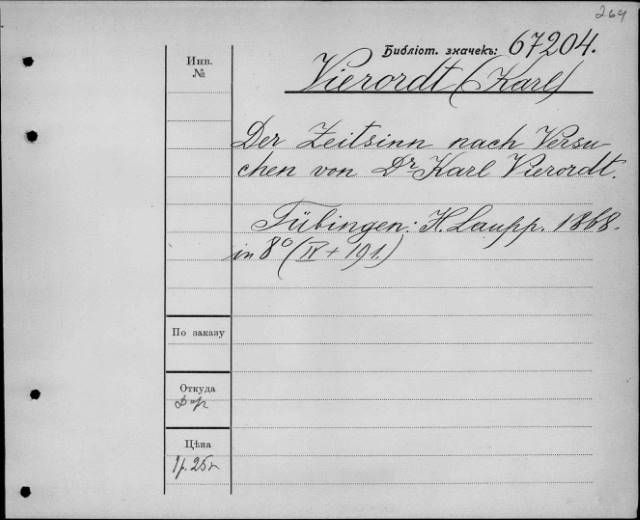 264
Библіот. значекъ: 67204.
Инв. №
Vierordt (Karl)
Der Zeitsinn nach Versu
chen von Dr Karl Vierordt.
Tübingen: H. Laupp. 1868.
in 8° (IV + 191.)
По заказу
Откуда
Дар
Цѣна
1 р. 25 к